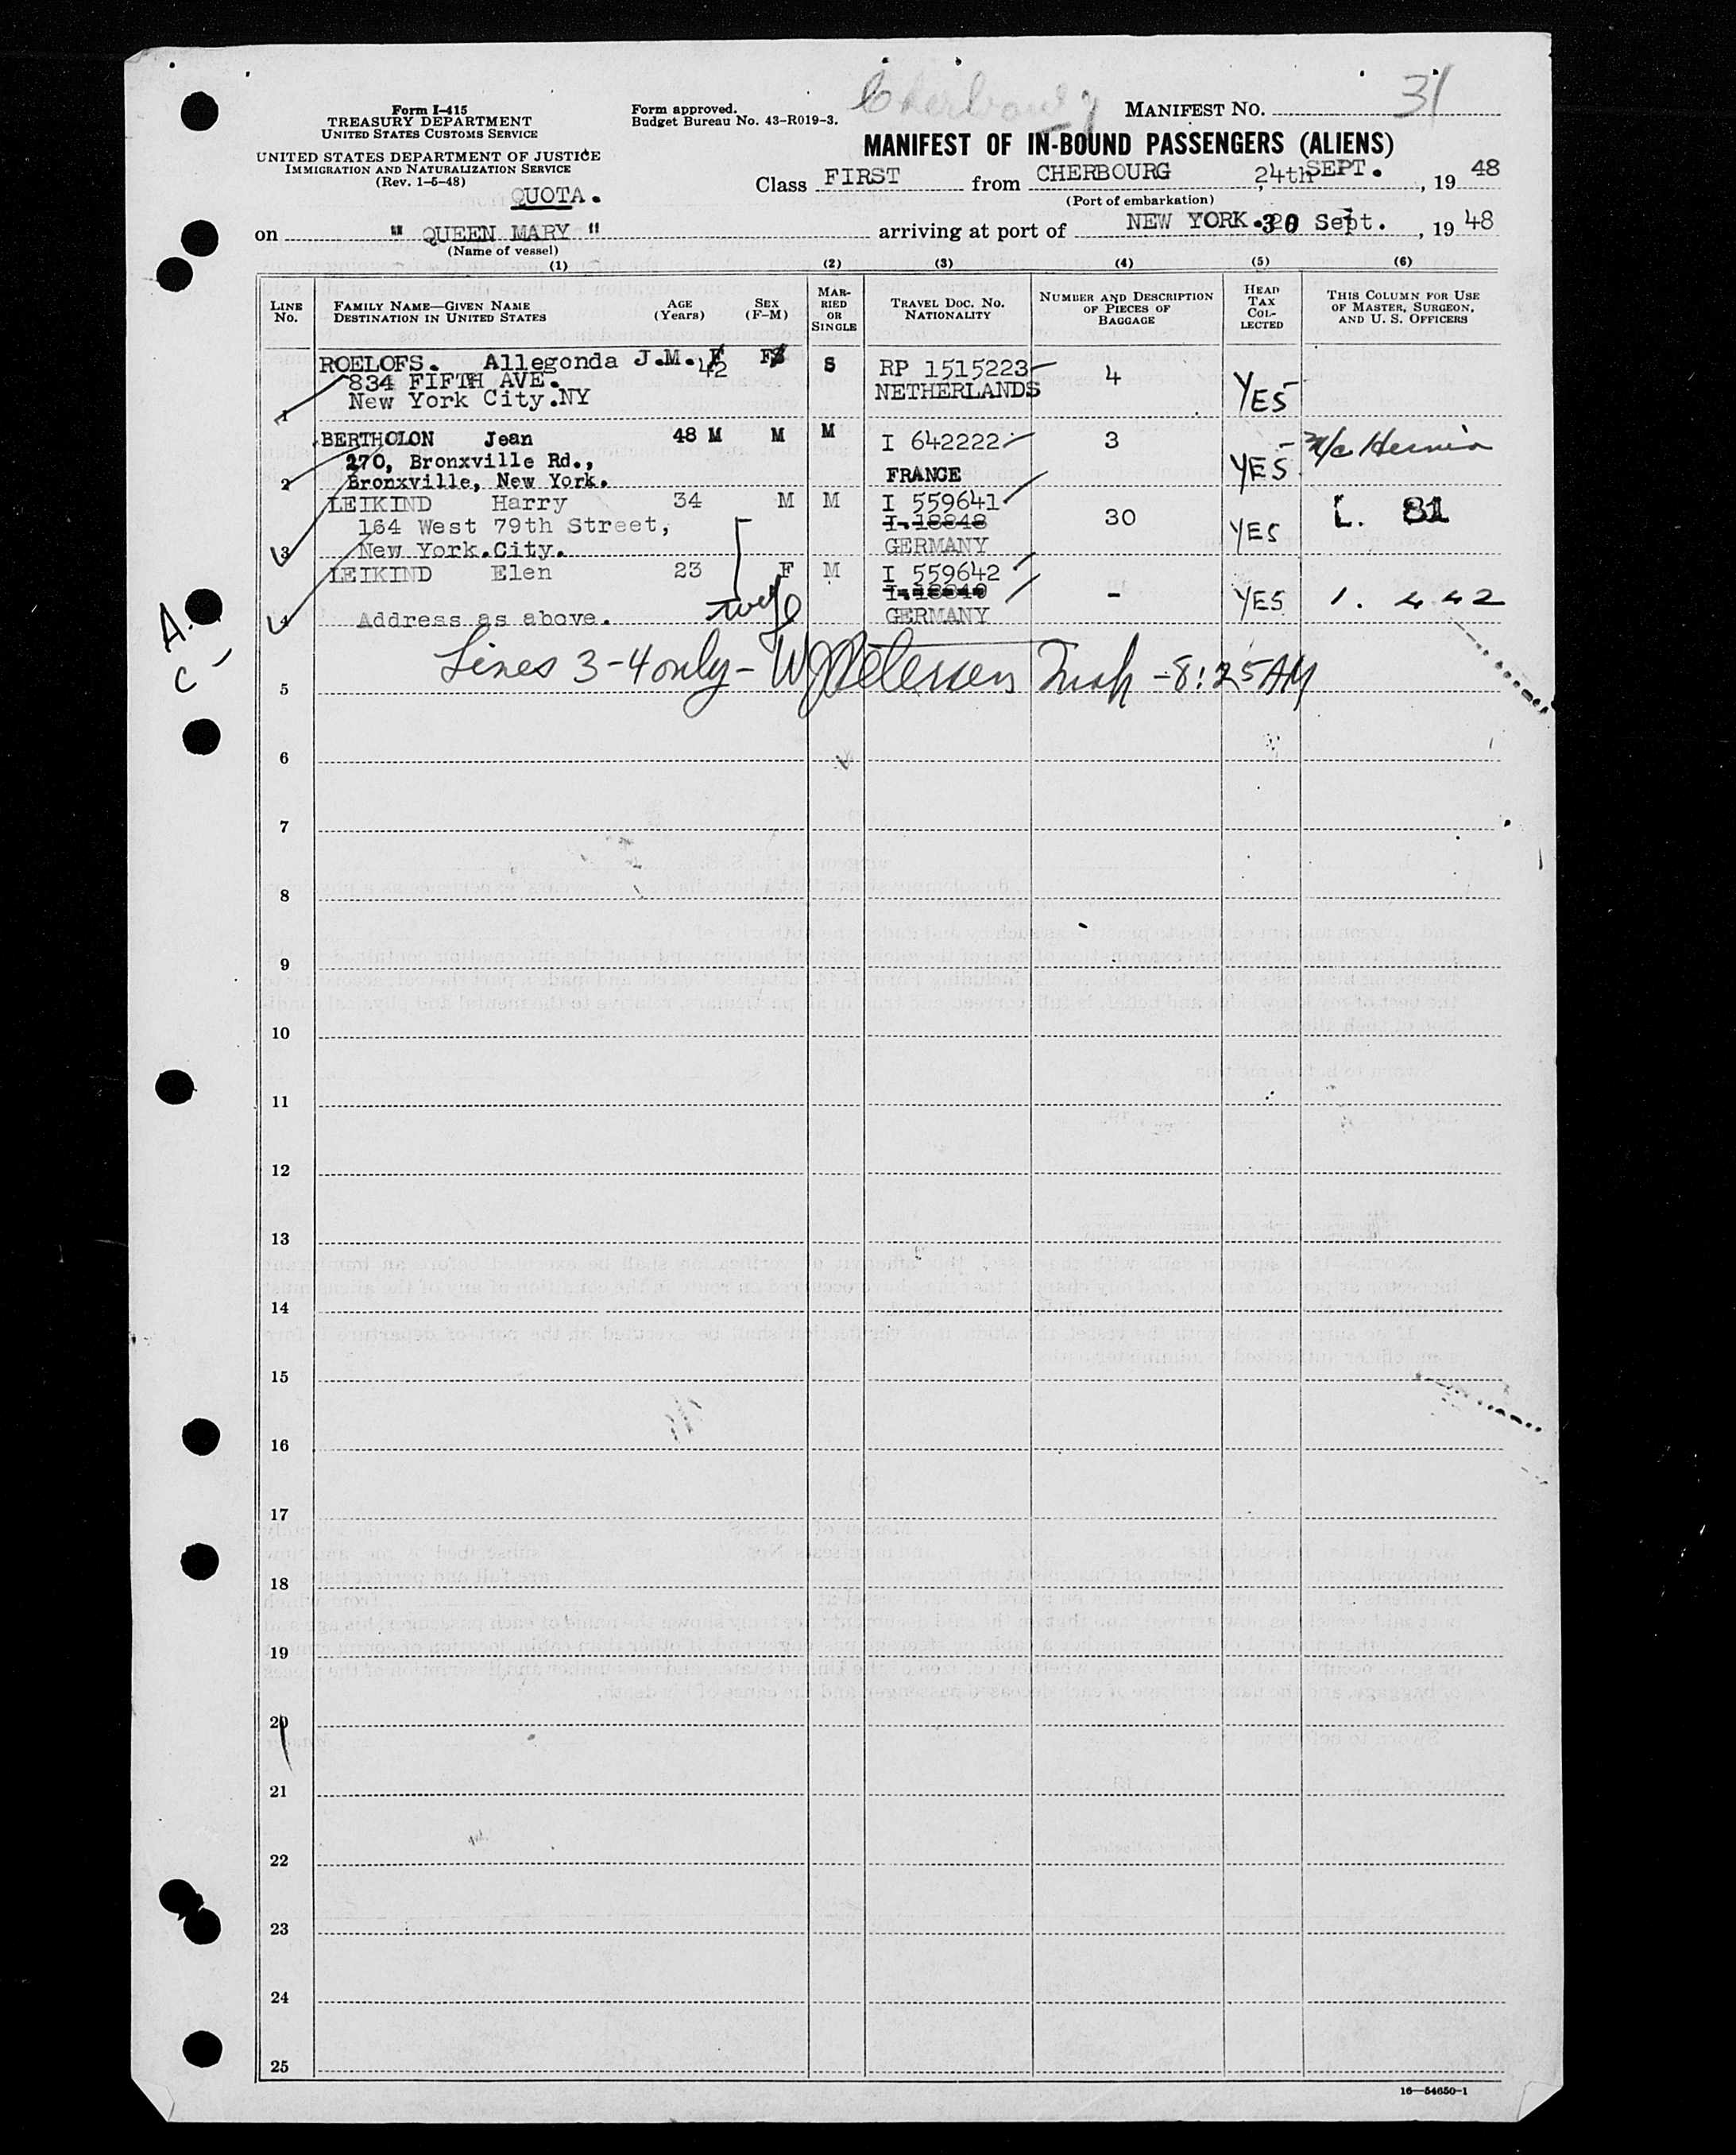 Form I-415
TREASURY DEPARTMENT
UNITED STATES CUSTOMS SERVICE
UNITED STATES DEPARTMENT OF JUSTICE
IMMIGRATION AND NATURALIZATION SERVICE
(Rev. 1-5-48)
QUOTA.
Form approved.
Budget Bureau No. 43-R019-3.
Cherbourg
MANIFEST NO. 31
MANIFEST OF IN-BOUND PASSENGERS (ALIENS)
Class FIRST from CHERBOURG 24th SEPT. , 19 48
(Port of embarkation)
on " QUEEN MARY " arriving at port of NEW YORK. 30 Sept. , 19 48
(Name of vessel)
(1) (2) (3) (4) (5) (6)
LINE No. FAMILY NAME—GIVEN NAME DESTINATION IN UNITED STATES AGE (Years) SEX (F-M) MARRIED OR SINGLE TRAVEL DOC. NO. NATIONALITY NUMBER AND DESCRIPTION OF PIECES OF BAGGAGE HEAD TAX COLLECTED THIS COLUMN FOR USE OF MASTER, SURGEON, AND U. S. OFFICERS
ROELOFS. Allegonda J.M. 42 F S RP 1515223 4 YES
834 FIFTH AVE. NETHERLANDS
1 New York City.NY
BERTHOLON Jean 48 M M M I 642222 3 YES
270, Bronxville Rd.,
2 Bronxville, New York. FRANCE
LEIKIND Harry 34 M M I 559641 30 YES L. 31
164 West 79th Street, I.18848
3 New York.City. GERMANY
LEIKIND Elen 23 F M I 559642 - YES 1. 442
wife
4 Address as above. GERMANY
A.
C-
Lines 3-4 only - W J Petersen Insp - 8:25 AM
5
6
7
8
9
10
11
12
13
14
15
16
17
18
19
20
21
22
23
24
25
16—54650-1